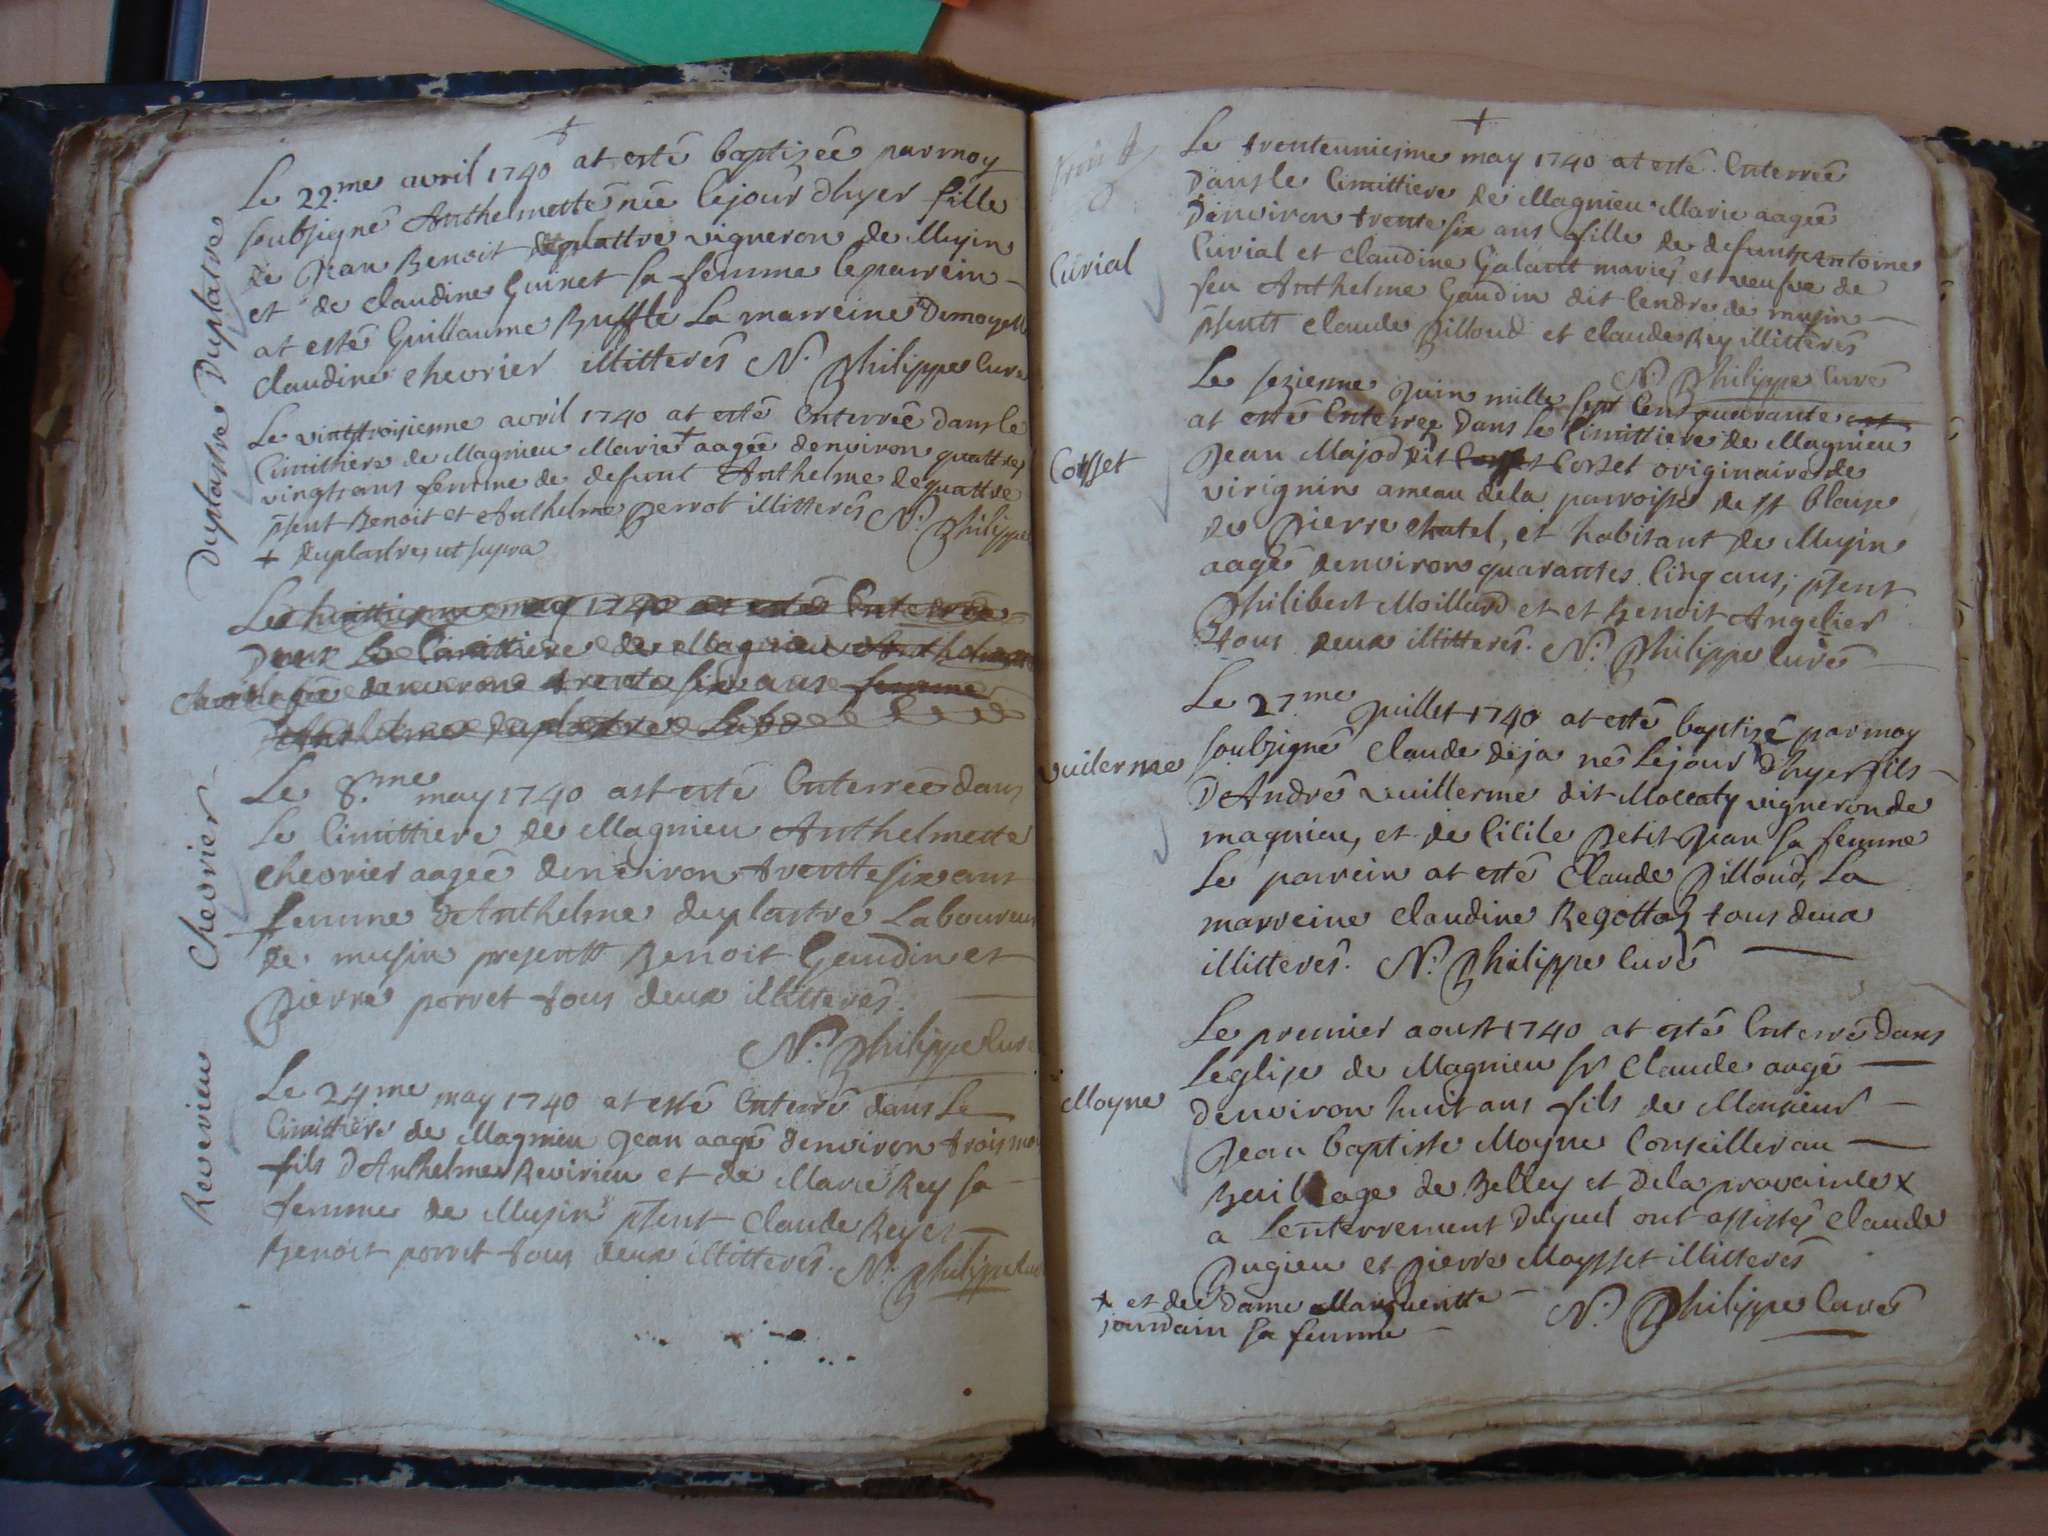 Duplastre
Le 22.me avril 1740 at esté baptisée par moy
soubsigné Anthelmette née le jour d'hyer fille
de Jean Benoit duplattre vigneron de Musin
et de claudine Guinet sa femme le parrein
at esté Guillaume Buffle La marreine Demoyselle
claudine chevrier illitterés N. Philippe Curé
Duplastre
Le vintroisieme avril 1740 at esté Enterrée dans le
Cimittiere de Magnieu Marie + aagée denviron quattre
vingts ans femme de defunt Anthelme de quattre
psent Benoit et Anthelme Perrot illitterés N. Philippe
+ duplastre ut supra
Le huittiesme may 1740 at esté Enterrée
Dans Le Cimittiere de Magnieu Anthelmette
aagée denviron trente six ans femme
Anthelme duplastre Labo
Chevrier
Le 8.me may 1740 at esté Enterrée dans
Le Cimittiere de Magnieu Anthelmette
chevrier aagée denviron trente six ans
femme d'Anthelme duplastre Laboureur
de musin presentt Benoit Gaudin et
Pierre porret tous deux illitterés.
N. Philippe Curé
Reverieu
Le 24me may 1740 at esté Enterré dans Le
Cimittiere de Magnieu Jean aagé denviron trois mois
fils D'Anthelme Revirieu et de Marie Rey sa
femme de Musin psent Claude Rey et
Benoit porret tous deux illitterés. N. Philippe Curé
+
Le trenteuniesme may 1740 at esté Enterrée
Dans le Cimittiere de Magnieu Marie aagée
Denviron trente six ans fille de defunts Antoine
Curial
Curial et claudine Galantt mariés et veufve de
feu Anthelme Gaudin dit Cendre de musin
psentt claude Pilloud et claude Rey illitterés
N. Philippe Curé
Le seziesme Juin mille sept Cens quarante
at esté Enterrée Dans Le Cimittiere de Magnieu
Cosset
Jean Majod dit Corset originaire de
virignin ameau de la parroisse de st blaise
de Pierre chatel, et habitant de Musin
aagé denviron quarantes Cinq ans, psent
Philibert Moillard et et Benoit Angelier
tous deux illitterés. N. Philippe Curé
Le 27me Juillet 1740 at esté baptizé par moy
soubsigné Claude deja né Le jour d'hyer fils
vuilerme
D'André vuillerme dit Moccaty vigneron de
magnieu, et de Cicile Petit Jean sa femme
Le parrein at esté Claude Pilloud, La
marreine Claudine Regottaz tous deux
illitterés. N. Philippe Curé
Le premier aoust 1740 at esté Enterré Dans
Leglise de Magnieu sr Claude aagé
Moyne
Denviron huit ans fils de Monsieur
Jean baptiste Moyne Conseiller au
Bailliage de Belley et De la provaince x
a Lenterrement Duquel ont assistés Claude
Pugieu et Pierre Maysset illitterés
x et de Dame Margueritte
jourdain sa femme
N. Philippe Curé